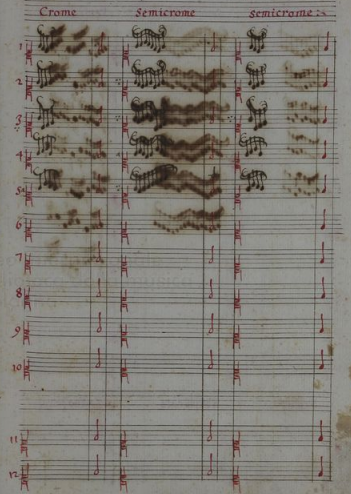 Crome Semicrome Semicrome
1
2
3
4
5
6
7
8
9
10
11
12